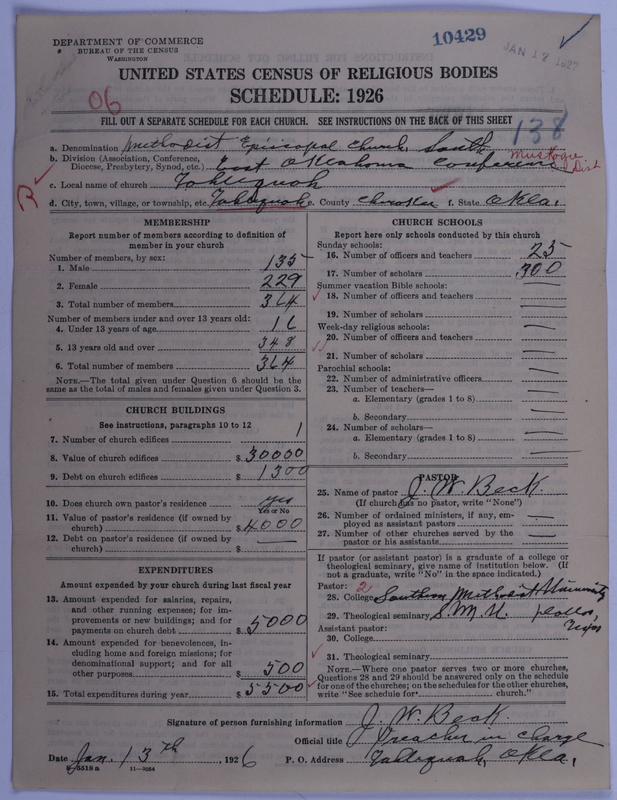 DEPARTMENT OF COMMERCE
BUREAU OF THE CENSUS
WASHINGTON
10429
JAN 17 1927
UNITED STATES CENSUS OF RELIGIOUS BODIES
SCHEDULE: 1926
06
FILL OUT A SEPARATE SCHEDULE FOR EACH CHURCH. SEE INSTRUCTIONS ON THE BACK OF THIS SHEET
138
a. Denomination Methodist Episcopal Church, South
b. Division (Association, Conference, Diocese, Presbytery, Synod, etc.) East Oklahoma Conference
Muskogee Dist
c. Local name of church Tahlequah
d. City, town, village, or township, etc. Tahlequah e. County Cherokee f. State Okla.
MEMBERSHIP
Report number of members according to definition of
member in your church
Number of members, by sex:
1. Male 135
2. Female 229
3. Total number of members 364
Number of members under and over 13 years old:
4. Under 13 years of age 16
5. 13 years old and over 348
6. Total number of members 364
NOTE.—The total given under Question 6 should be
same as the total of males and females given under Question 3.
CHURCH BUILDINGS
See instructions, paragraphs 10 to 12
7. Number of church edifices 1
8. Value of church edifices $ 30000
9. Debt on church edifices $ 1300
10. Does church own pastor's residence yes
Yes or No
11. Value of pastor's residence (if owned by
church) $ 4000
12. Debt on pastor's residence (if owned by
church) $ —
EXPENDITURES
Amount expended by your church during last fiscal year
13. Amount expended for salaries, repairs,
and other running expenses; for im-
provements or new buildings; and for
payments on church debt $ 5000
14. Amount expended for benevolences, in-
cluding home and foreign missions; for
denominational support; and for all
other purposes $ 500
15. Total expenditures during year $ 5500
CHURCH SCHOOLS
Report here only schools conducted by this church
Sunday schools:
16. Number of officers and teachers 25
17. Number of scholars 300
Summer vacation Bible schools:
18. Number of officers and teachers —
19. Number of scholars —
Week-day religious schools:
20. Number of officers and teachers —
21. Number of scholars —
Parochial schools:
22. Number of administrative officers —
23. Number of teachers—
a. Elementary (grades 1 to 8) —
b. Secondary —
24. Number of scholars—
a. Elementary (grades 1 to 8) —
b. Secondary —
PASTOR
25. Name of pastor J. W. Beck
(If church has no pastor, write "None")
26. Number of ordained ministers, if any, em-
ployed as assistant pastors —
27. Number of other churches served by the
pastor or his assistants —
If pastor (or assistant pastor) is a graduate of a college or
theological seminary, give name of institution below. (If
not a graduate, write "No" in the space indicated.)
Pastor: 2
28. College Southern Methodist University
29. Theological seminary S. M. U. Dallas, Texas
Assistant pastor:
30. College
31. Theological seminary
NOTE.—Where one pastor serves two or more churches,
Questions 28 and 29 should be answered only on the schedule
for one of the churches; on the schedules for the other churches,
write "See schedule for church."
Signature of person furnishing information J. W. Beck
Official title Preacher in charge
Date Jan. 13th, 1926 P. O. Address Tahlequah, Okla.
8-5518 a 11-9084